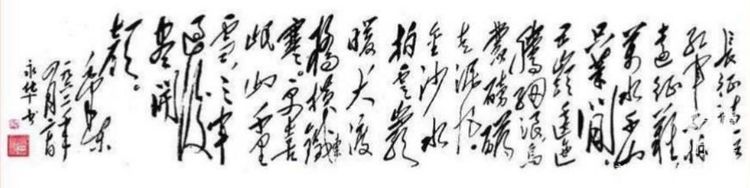 长征诗一首
红军不怕
远征难，
万水千山
只等闲。
五岭逶迤
腾细浪，乌
蒙磅礴
走泥丸。
金沙水
拍云崖
暖，大渡
桥横铁索
寒。更喜
岷山千里
雪，三军
过后
尽开
颜。
毛泽东
一九六二年
永华书